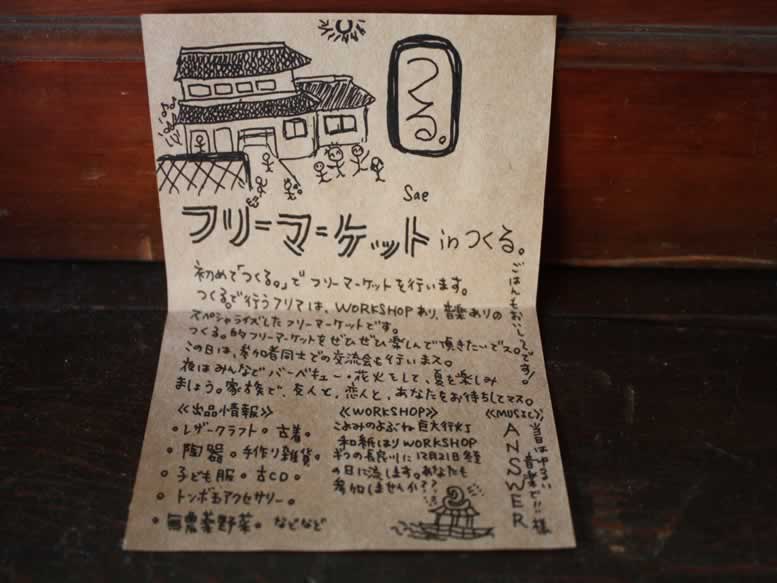 つくる。
Sae
フリーマーケット in つくる。
初めて「つくる。」で フリーマーケットを行います。
つくる。で行うフリマは、WORKSHOPあり、音楽ありの
スペシャライズしたフリーマーケットです。
つくる。的フリーマーケットをぜひぜひ楽しんで頂きたいでス。
この日は、参加者同士での交流会も行いまス。
夜はみんなで バーベキュー・花火をして、夏を楽しみ
ましょう。家族で、友人と、恋人と、あなたをお待ちしてマス。
ごはんもおいしいです!
《出品情報》
・レザークラフト・古着・
・陶器・手作り雑貨・
・子ども服・古CD・
・トンボ玉アクセサリー・
・無農薬野菜・などなど
《WORKSHOP》
こよみのよぶね 巨大行灯
和紙はり WORKSHOP
ぎふの長良川に12月21日
の日に流します。あなたも
参加しませんか??
《MUSIC》
ANSWER様
当日はゆるい
音楽で!!